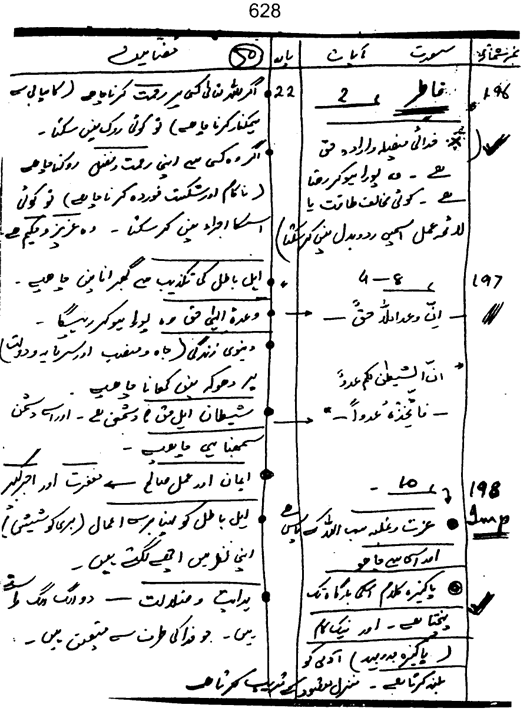 628
نمبر شمار سورت آیات پارہ (50) مضامین
196 فاطر 2 22 اگر اللہ تعالیٰ کسی پر رحمت کرنا چاہے (کامیابی سے
ہمکنار کرنا چاہے) تو کوئی روک نہیں سکتا۔
خدائی فیصلہ و ارادہ حق
اگر وہ کسی سے اپنی رحمت و فضل روکنا چاہے
ہے۔ وہ پورا ہو کر رہتا
(ناکام اور شکست خوردہ کرنا چاہے) تو کوئی
ہے۔ کوئی مخالف طاقت یا
اسکا اجراء نہیں کر سکتا۔ وہ عزیز و حکیم ہے
لائحہ عمل اسمیں ردوبدل نہیں کر سکتا)
197 4-8 اہل باطل کی تکذیب سے گھبرانا نہیں چاہیے۔
ان وعد اللہ حق — وعدۂ الٰہی حق وہ پورا ہو کر رہیگا۔
دنیوی زندگی (جاہ و منصب اور سرمایہ و دولت)
پر دھوکہ نہیں کھانا چاہیے
ان الشیطٰن لکم عدوٌ
شیطان اہل حق کا دشمن ہے۔ اور اسے دشمن
فاتخذہ عدواً —
سمجھنا ہی چاہیے۔
ایمان اور عمل صالح سے مغفرت اور اجر کبیر
198 10 —
Imp عزت و غلبہ سب اللہ کے پاس ہے
اہل باطل کو اپنا برے اعمال (بری کوششیں)
اور اسی سے چاہو
اپنی نظر میں اچھے لگتے ہیں۔
پاکیزہ کلام اسکی بارگاہ تک
ہدایت و ضلالت — دو الگ الگ راستے
پہنچتا ہے۔ اور نیک کام
ہیں۔ جو خدا کی طرف سے متعین ہیں۔
(پاکیزہ جدوجہد) آدمی کو
بلند کرتا ہے۔ منزل مقصود سے قریب کرتا ہے